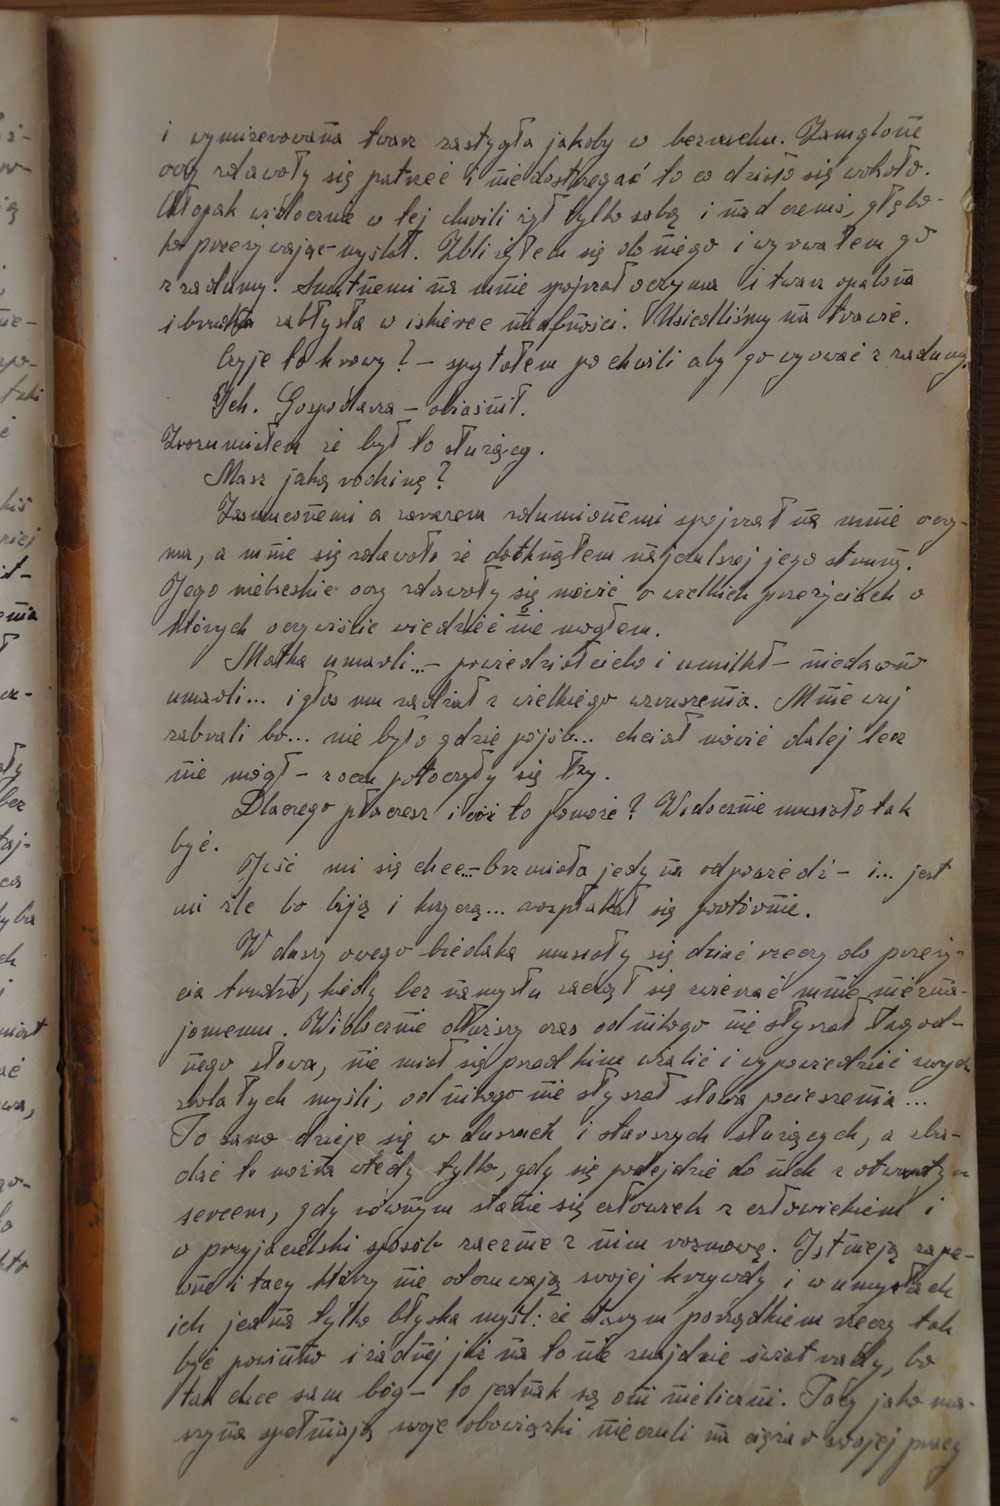 i wymizerowana twarz zastygła jakoby w bezruchu. Zamglone
oczy zdawały się patrzeć i niedostrzegać to co działo się wokoło.
Chłopak widocznie w tej chwili żył tylko sobą i nad czemiś, głębo-
ko przeżywając myślał. Zbliżyłem się do niego i wyrwałem go
z zadumy. Smutnemi na mnie spojrzał oczyma i twarz opalona
i brudna zabłysła w iskierce ufności. Usiedliśmy na trawie.
Czyje to krowy? – spytałem po chwili aby go wyrwać z zadumy.
Ich. Gospodarza – objaśnił.
Zrozumiałem że był to służący.
Masz jaką rodzinę?
Zasmuconemi a zarazem zdumionemi spojrzał na mnie oczy-
ma, a mnie się zdawało że dotknąłem najczulszej jego struny.
Jego niebieskie oczy zdawały się mówić o wielkich przeżyciach o
których oczywiście wiedzieć nie mogłem.
Matka umarli... – powiedział cicho i umilkł – niedawno
umarli... i głos mu zadrżał z wielkiego wzruszenia. Mnie wuj
zabrali bo... nie było gdzie pójść... chciał mówić dalej lecz
nie mógł – z oczu potoczyły się łzy.
Dlaczego płaczesz i cóż to pomoże? Widocznie musiało tak
być.
Jeść mi się chce... – brzmiała jedyna odpowiedź – i... jest
mi źle bo biją i krzyczą... rozpłakał się powtórnie.
W duszy owego biedaka musiały się dziać rzeczy do przeży-
cia trudne, kiedy bez namysłu zaczął się zwierzać mnie niezna-
jomemu. Widocznie dłuższy czas od nikogo nie słyszał łagod-
nego słowa, nie miał się przed kim użalić i wypowiedzieć swych
zbolałych myśli, od nikogo nie słyszał słowa pocieszenia...
To samo dzieje się w duszach i starszych służących, a zba-
dać to można wtedy tylko, gdy się podejdzie do nich z otwartym
sercem, gdy równym stanie się człowiek z człowiekiem i
w przyjacielski sposób zacznie z nim rozmowę. Istnieją zape-
wne i tacy którzy nie odczuwają swojej krzywdy i w umysłach
ich jedna tylko błyska myśl: że starym porządkiem rzeczy tak
być powinno i żadnej już na to nie znajdzie świat rady, bo
tak chce sam bóg – to jednak są oni nieliczni. Tacy jako ma-
szyna spełniają swoje obowiązki nieczuli na ciężar swojej pracy